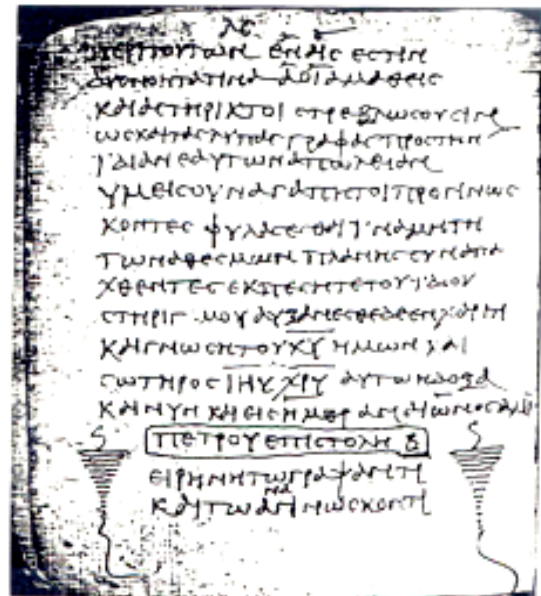 ΛΕ
ΠΕΡΙ ΤΟΥΤΩΝ ΕΝ ΑΙΣ ΕΣΤΙΝ
ΔΥΣΝΟΗΤΑ ΤΙΝΑ Α ΟΙ ΑΜΑΘΕΙΣ
ΚΑΙ ΑΣΤΗΡΙΚΤΟΙ ΣΤΡΕΒΛΩΣΟΥΣΙΝ
ΩΣ ΚΑΙ ΤΑΣ ΛΥΠΑΣ ΓΡΑΦΑΣ ΠΡΟΣ ΤΗΝ
ΙΔΙΑΝ ΕΑΥΤΩΝ ΑΠΩΛΕΙΑΝ
ΥΜΕΙΣ ΟΥΝ ΑΓΑΠΗΤΟΙ ΠΡΟΓΙΝΩΣ
ΚΟΝΤΕΣ ΦΥΛΑΣΕΣΘΑΙ ΙΝΑ ΜΗ ΤΗ
ΤΩΝ ΑΘΕΣΜΩΝ ΠΛΑΝΗΣ ΣΥΝΑΠΑ
ΧΘΕΝΤΕΣ ΕΚΠΕΣΗΤΕ ΤΟΥ ΙΔΙΟΥ
ΣΤΗΡΙΓΜΟΥ ΑΥΞΑΝΕΣΘΕ ΔΕ ΕΝ ΧΑΡΙΤΙ
ΚΑΙ ΓΝΩΣΗ ΤΟΥ ΚΥ ΗΜΩΝ ΚΑΙ
ΣΩΤΗΡΟΣ ΙΗΥ ΧΡΥ ΑΥΤΩ Η ΔΟΞΑ
ΚΑΙ ΝΥΝ ΚΑΙ ΕΙΣ ΗΜΕΡΑΝ ΑΙΩΝΟΣ
ΠΕΤΡΟΥ ΕΠΙΣΤΟΛΗ Β
ΕΙΡΗΝΗ ΤΩ ΓΡΑΨΑΝΤΙ
ΚΑΙ ΤΩ ΑΝΑΓΙΝΩΣΚΟΝΤΙ